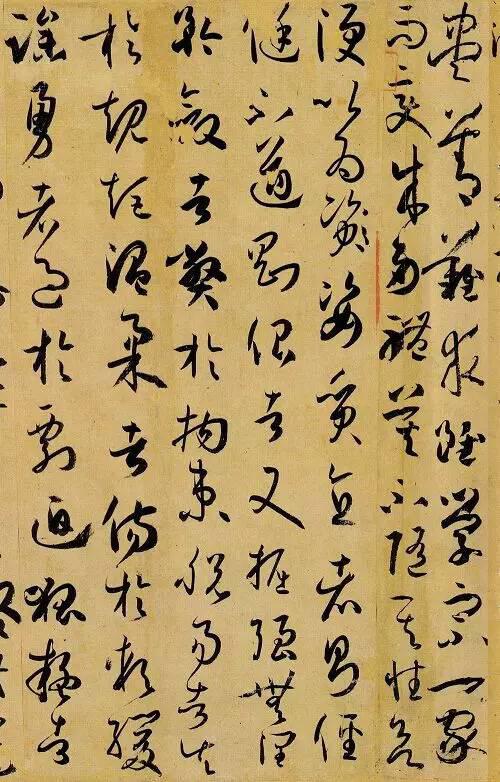 盡善難求雖學宗一家
而變成多體莫不隨其性欲
便以為資姿質直者則俓
侹不遒剛佷者又掘強無潤
矜斂者弊於拘束脫易者失
於規矩溫柔者傷於軟緩
躁勇者過於剽迫狐疑者